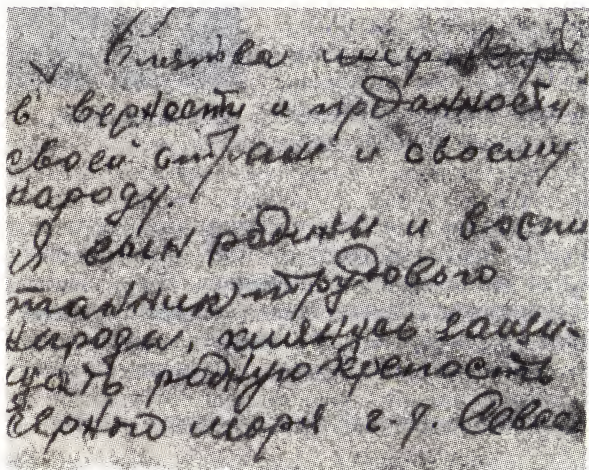 Клятва
в верности и преданности
своей стран и своему
народу.
Я сын родины и воспи
танник трудового
народа, клянусь защи-
щать родную крепость
Черного моря г-д. Севас